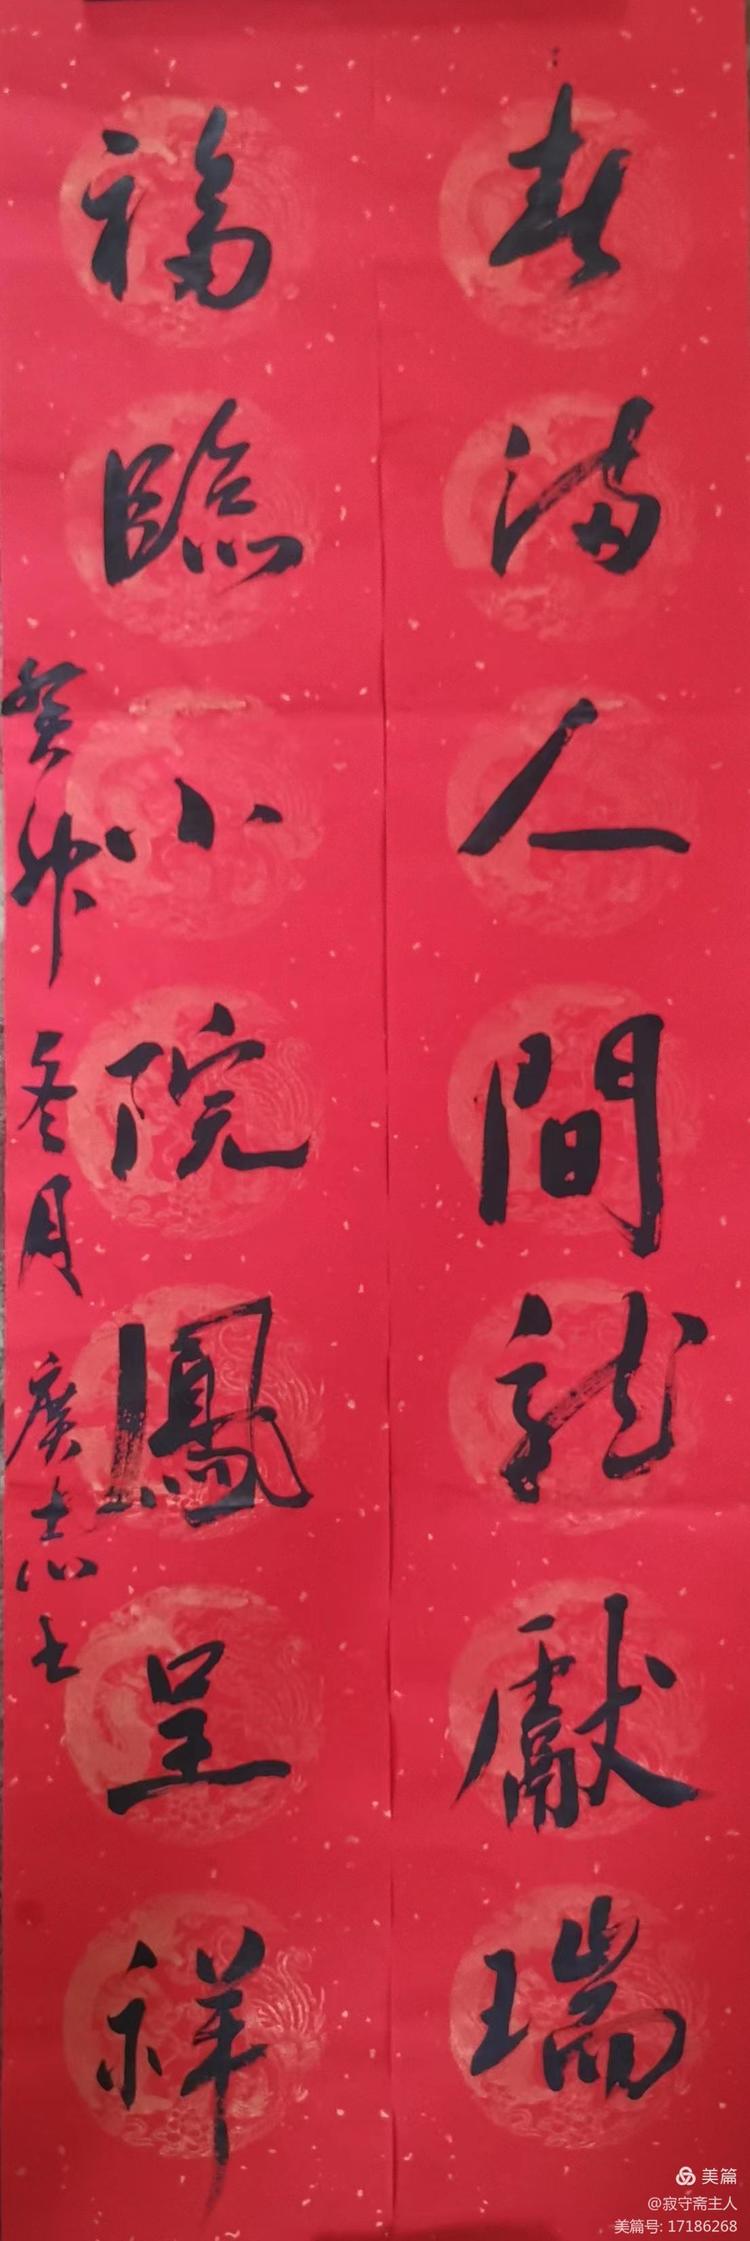 春满人間龙獻瑞
福臨小院鳳呈祥
癸卯冬月 庆志书
美篇
@寂守斋主人
美篇号: 17186268